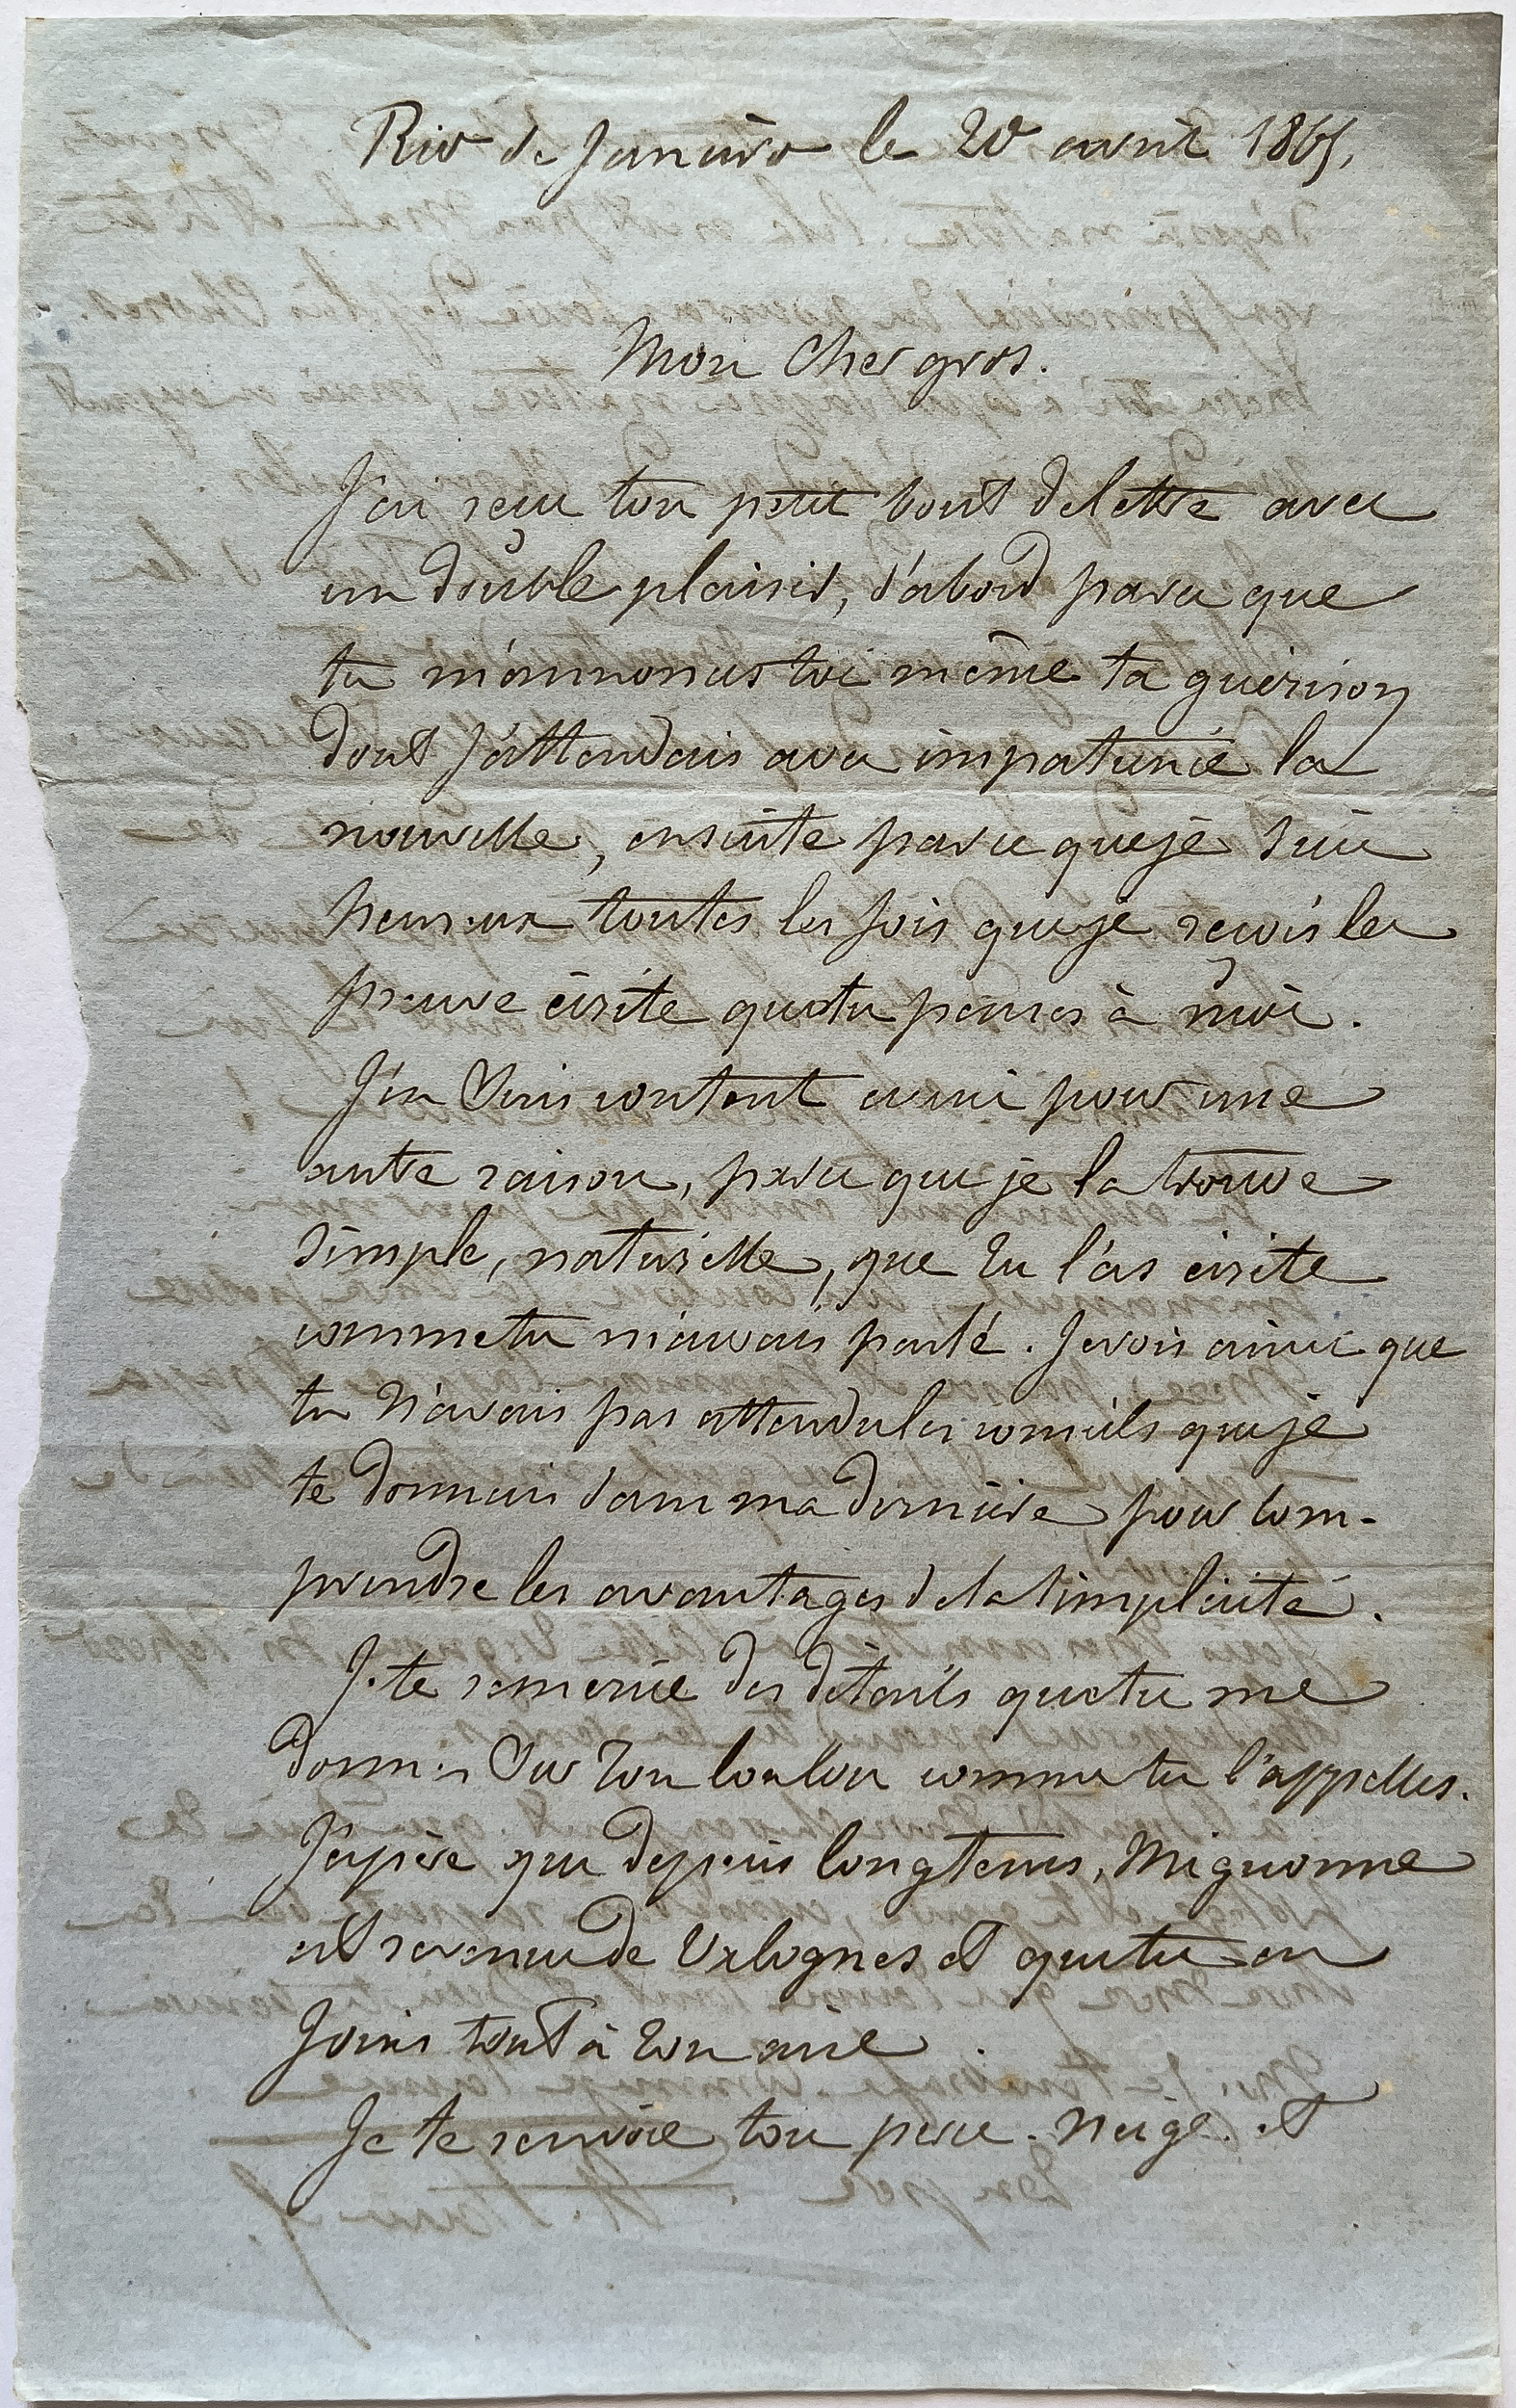 Rio de Janeiro le 20 avril 1865,
Mon cher gros.
J'ai reçu ton petit bout de lettre avec
un double plaisir, d'abord parce que
tu m'annonces toi même ta guérison
dont j'attendais avec impatience la
nouvelle, ensuite parce que je suis
heureux toutes les fois que je reçois la
preuve écrite que tu penses à moi.
J'en suis content aussi pour une
autre raison, parce que je la trouve
simple, naturelle, que tu l'as écrite
comme tu m'aurais parlé. Je vois ainsi que
tu n'avais pas attendu les conseils que je
te donnais dans ma dernière pour com-
prendre les avantages de la simplicité.
Je te remercie des détails que tu me
donnes sur ton loulou comme tu l'appelles.
J'espère que depuis longtems, Mignonne
est revenue de Valognes et que tu en
jouis tout à ton aise.
Je te renvoie ton perce-neige et